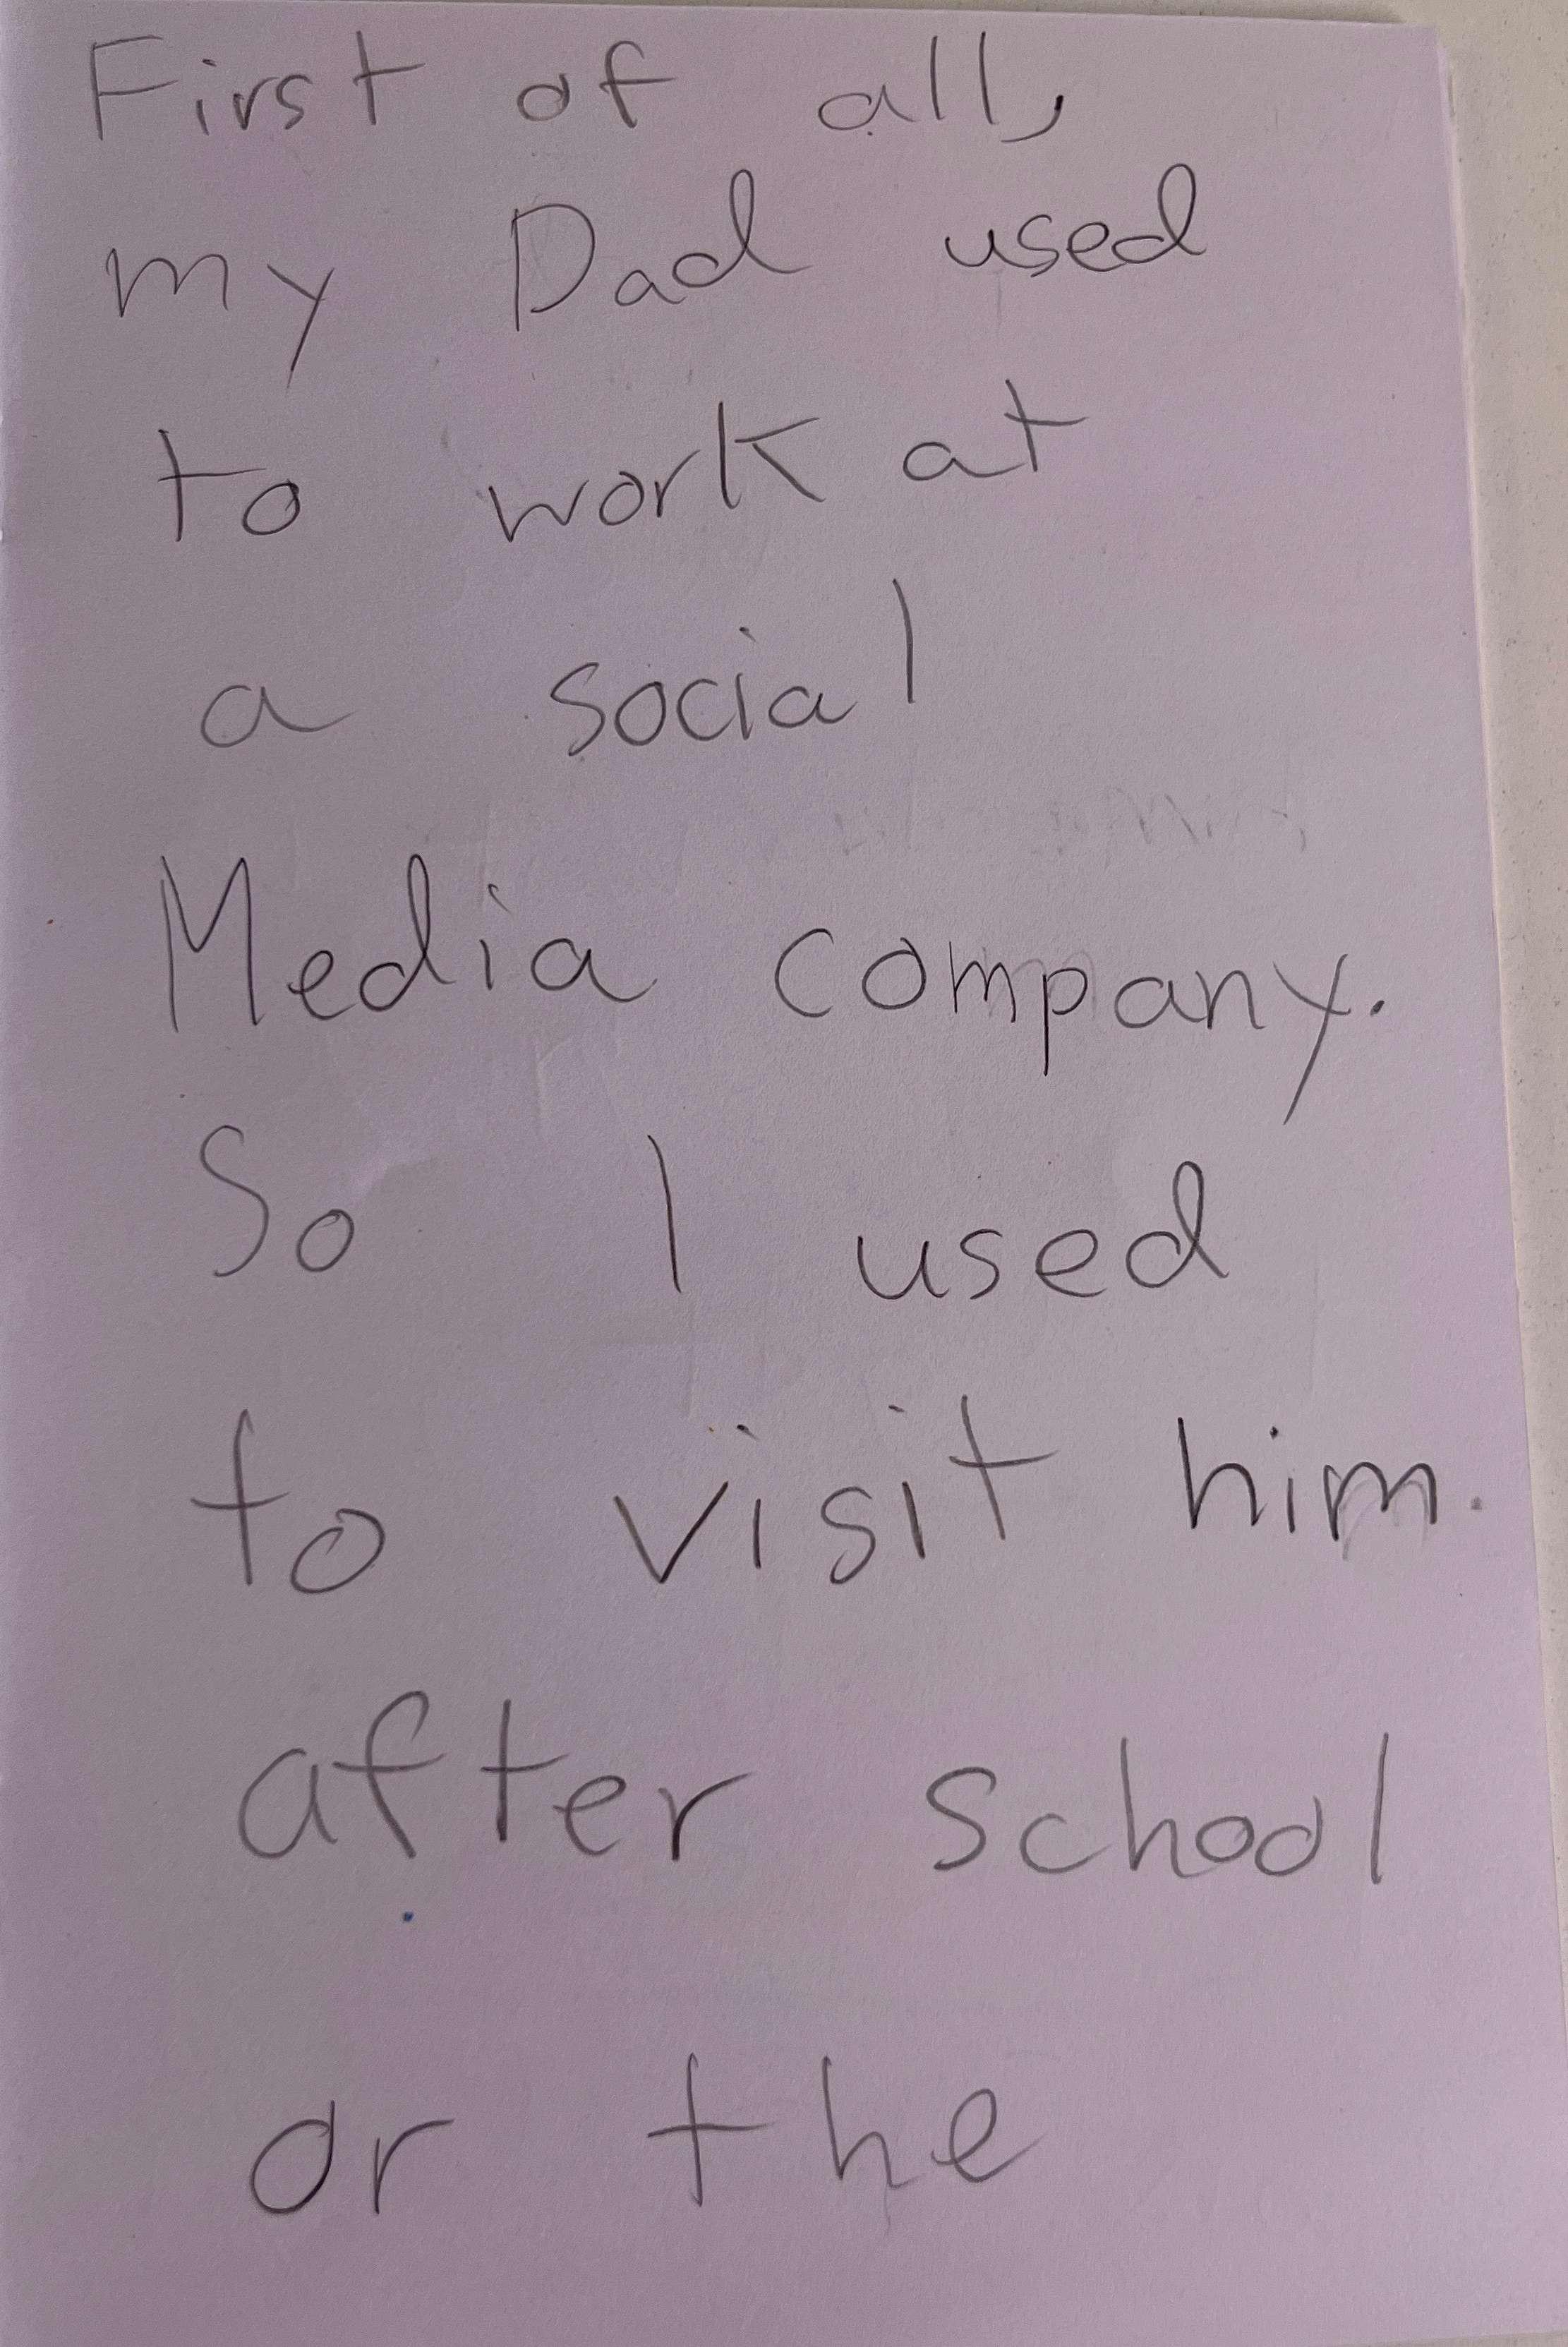 First of all,
my Dad used
to work at
a social
Media company.
So I used
to visit him.
after school
or the